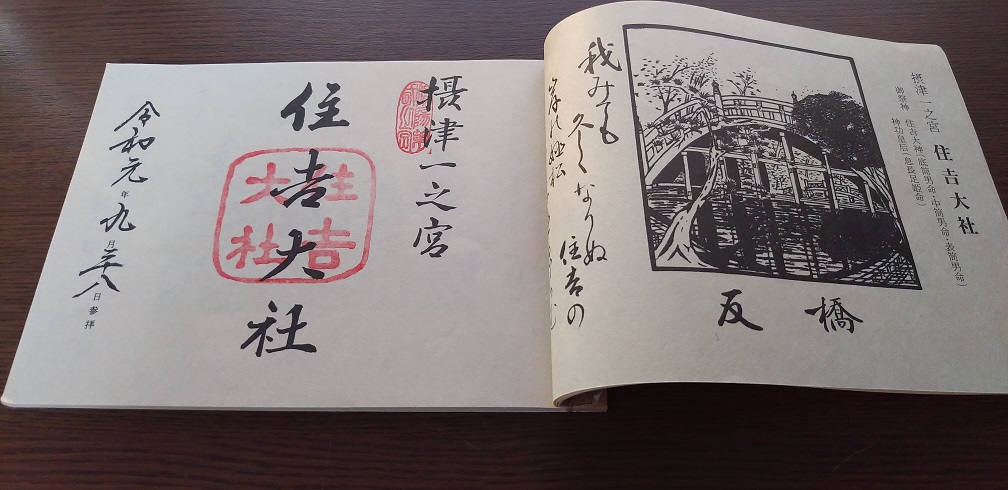 摂津一之宮 住吉大社
御祭神 住吉大神（底筒男命・中筒男命・表筒男命）
神功皇后（息長足姫命）
反橋
我みても
久しくなりぬ
住吉の
岸の姫松
摂津一之宮
住吉大社
住吉大社
令和元年九月二十八日参拝